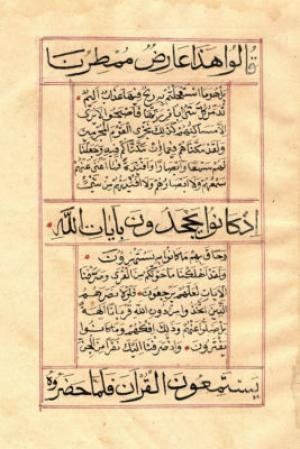 قالوا هذا عارض ممطرنا
بل هو ما استعجلتم به ريح فيها عذاب اليم
تدمر كل شئ بامر ربها فاصبحوا لا يرى
الا مساكنهم كذلك نجزى القوم المجرمين
ولقد مكناهم فيما ان مكناكم فيه وجعلنا
لهم سمعا وابصارا وافئدة فما اغنى عنهم
سمعهم ولا ابصارهم ولا افئدتهم من شئ
اذ كانوا يجحدون بايات الله
وحاق بهم ما كانوا به يستهزؤن
ولقد اهلكنا ما حولكم من القرى وصرفنا
الايات لعلهم يرجعون فلولا نصرهم
الذين اتخذوا من دون الله قربانا الهة
بل ضلوا عنهم وذلك افكهم وما كانوا
يفترون واذ صرفنا اليك نفرا من الجن
يستمعون القران فلما حضروه